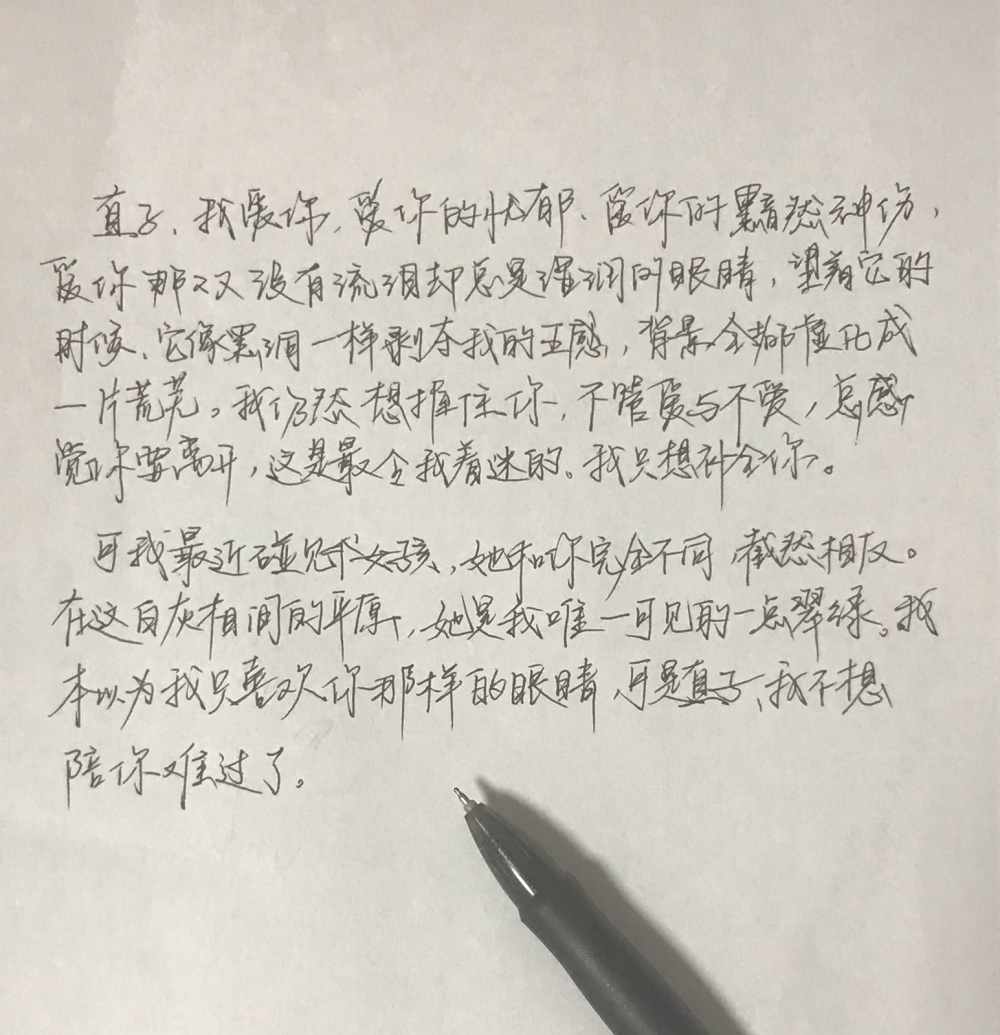 直子、我爱你，爱你的忧郁、爱你的黯然神伤，
爱你那双没有流泪却总是湿润的眼睛，望着它的
时候、它像黑洞一样剥夺我的五感，背景全都虚化成
一片荒芜。我仍然想握住你，不管爱与不爱，总感
觉你要离开，这是最令我着迷的。我只想补全你。
可我最近碰见个女孩，她和你完全不同 截然相反。
在这白灰相间的平原，她是我唯一可见的一点翠绿。我
本以为我只喜欢你那样的眼睛，可是直子、我不想
陪你难过了。